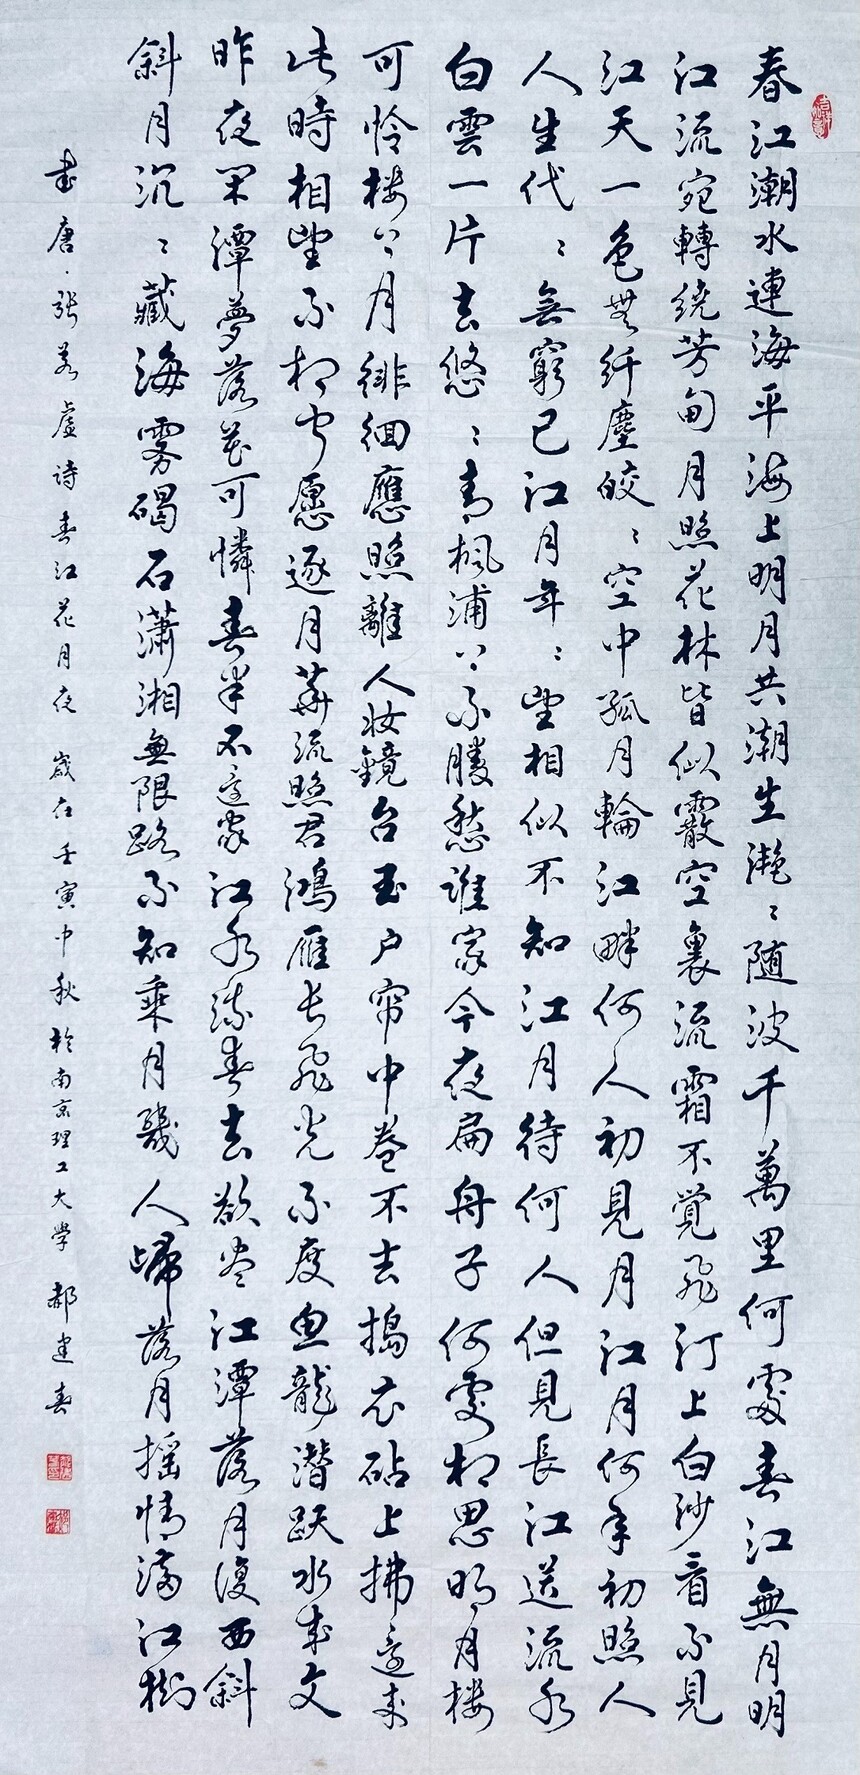 春江潮水連海平海上明月共潮生灧〻随波千萬里何處春江無月明
江流宛轉繞芳甸月照花林皆似霰空裏流霜不覺飛汀上白沙看不見
江天一色無纤塵皎〻空中孤月輪江畔何人初見月江月何年初照人
人生代〻無窮已江月年〻望相似不知江月待何人但見長江送流水
白雲一片去悠〻青楓浦上不勝愁誰家今夜扁舟子何處相思明月楼
可怜楼上月徘徊應照離人妝鏡台玉户帘中卷不去搗衣砧上拂還来
此時相望不相闻愿逐月華流照君鴻雁長飛光不度魚龍潜跃水成文
昨夜闲潭夢落花可憐春半不還家江水流春去欲尽江潭落月復西斜
斜月沉〻藏海雾碣石瀟湘無限路不知乘月幾人歸落月摇情满江樹
書唐·張若虚诗春江花月夜 歲在壬寅中秋於南京理工大学 郝建春